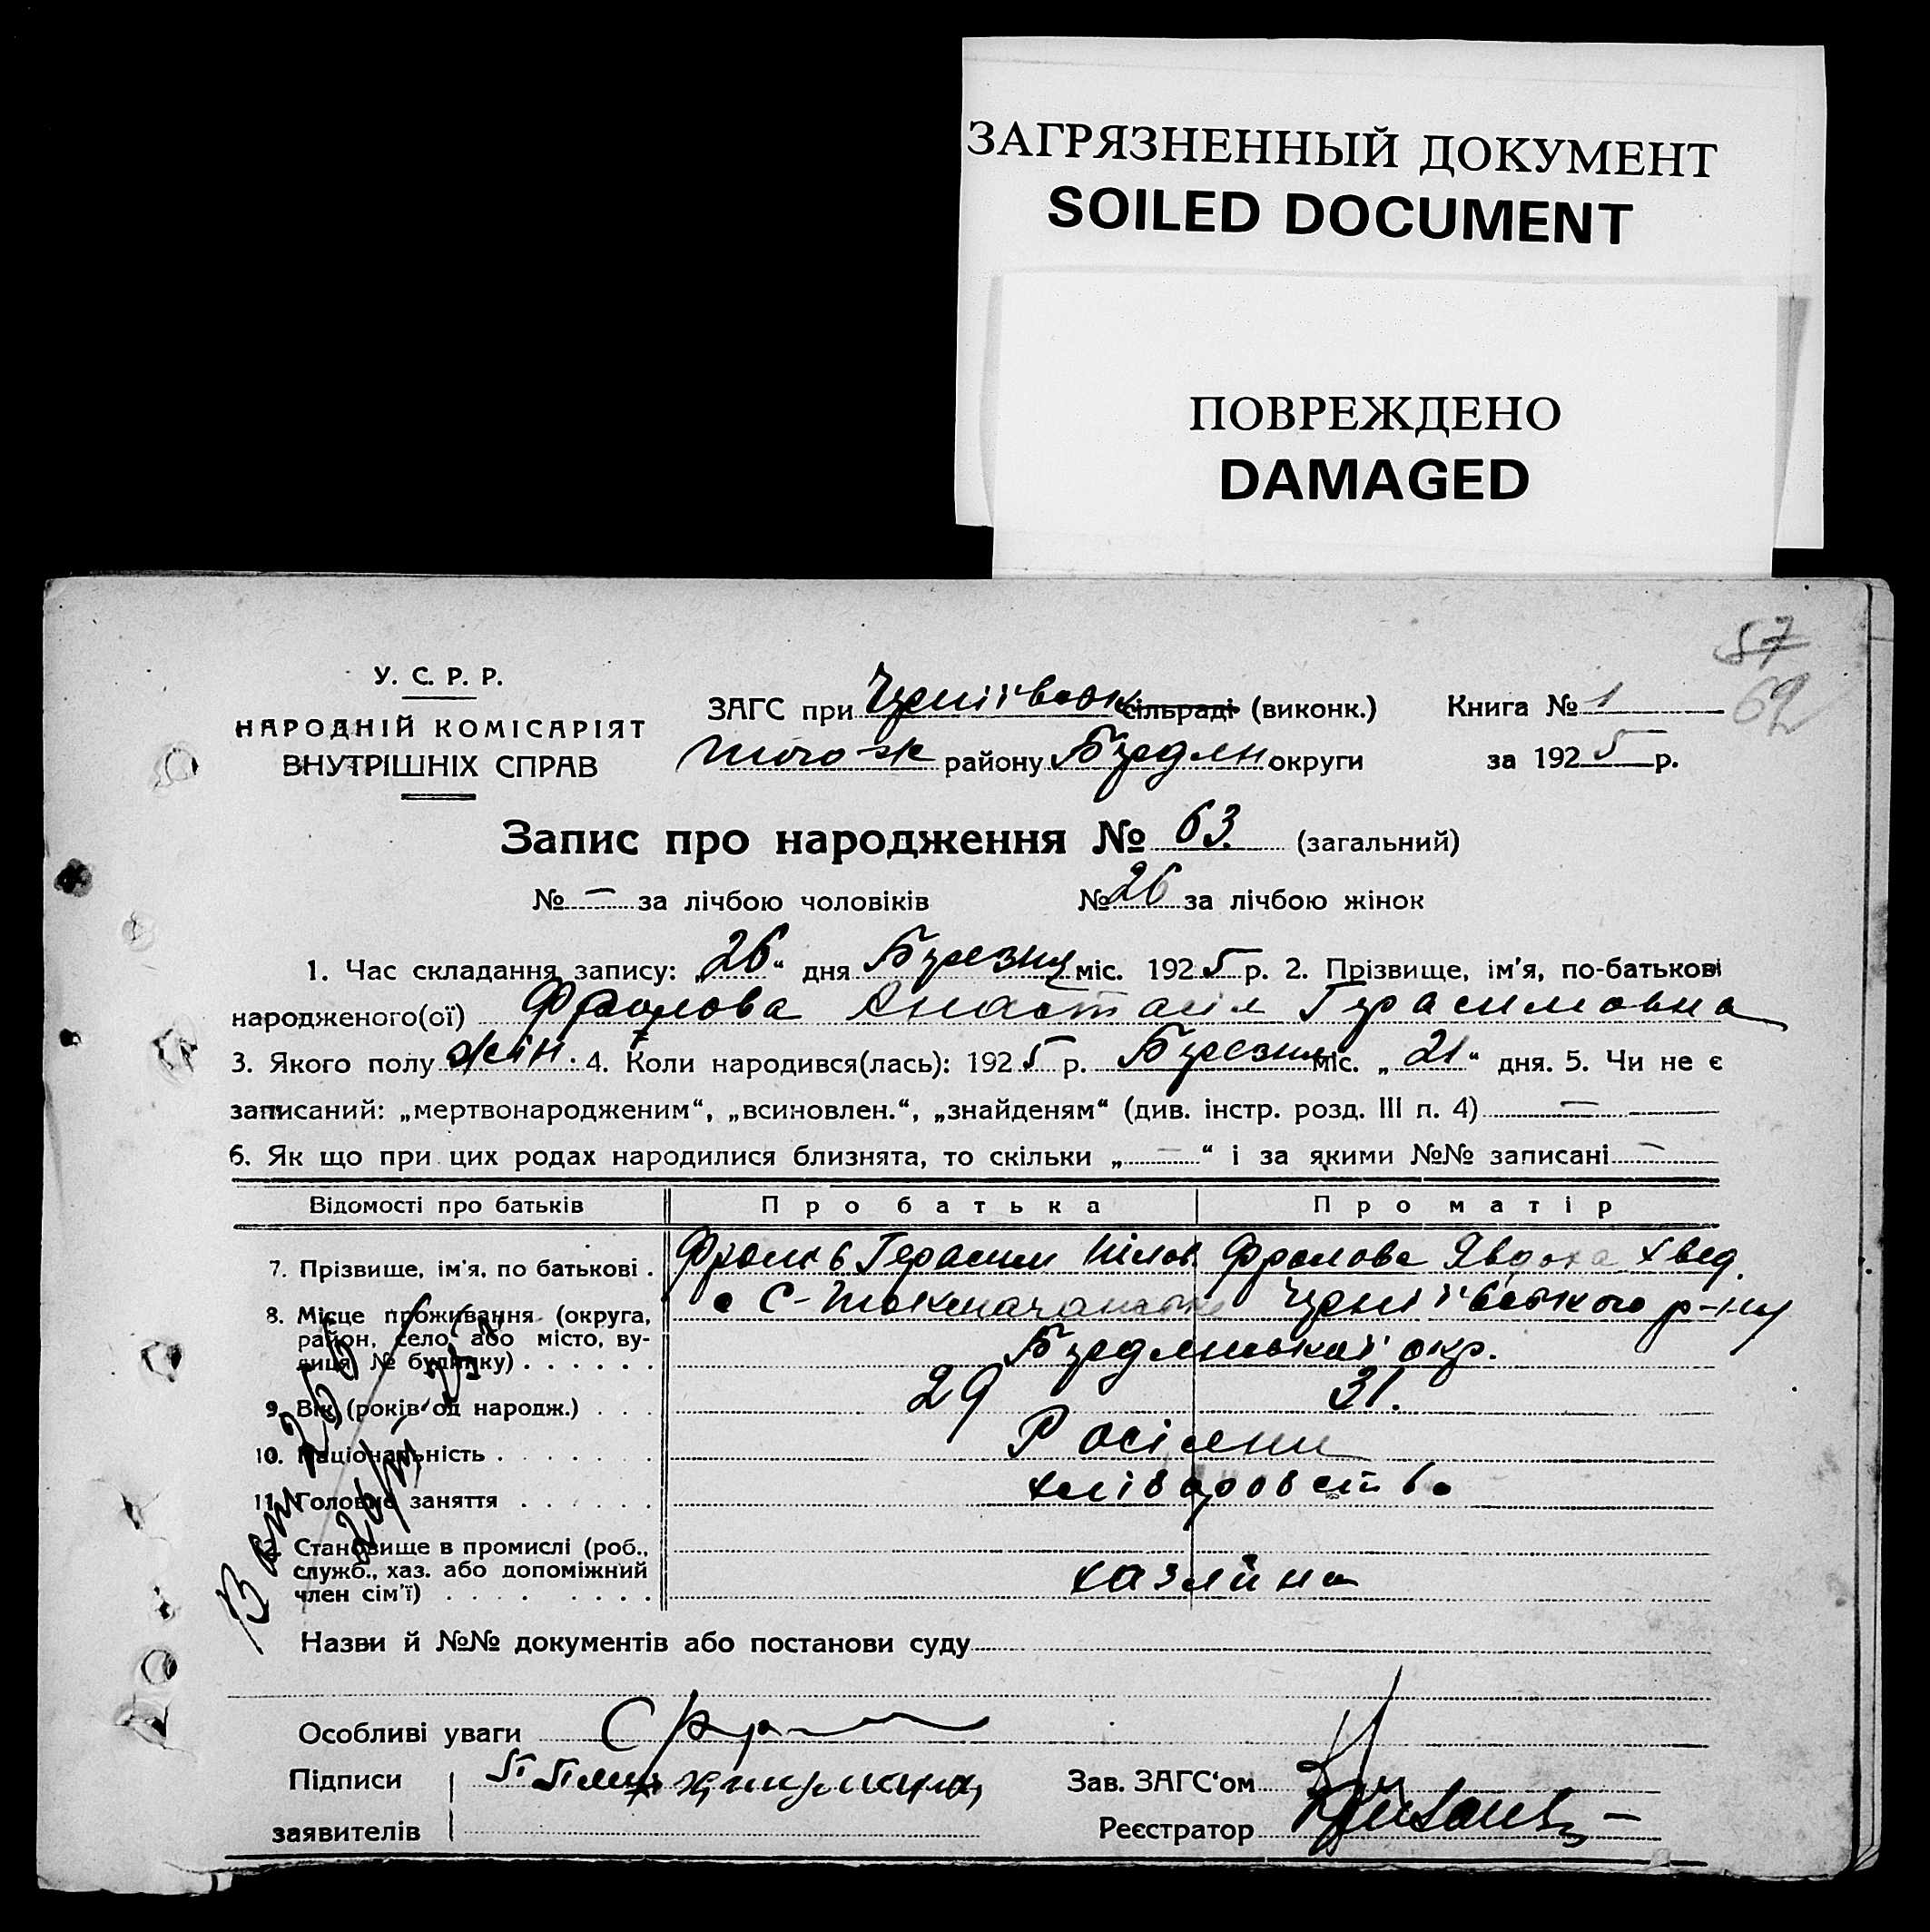 ЗАГРЯЗНЕННЫЙ ДОКУМЕНТ
SOILED DOCUMENT
ПОВРЕЖДЕНО
DAMAGED
57
62
У. С. Р. Р.
НАРОДНІЙ КОМІСАРІЯТ
ВНУТРІШНІХ СПРАВ
ЗАГС при сільраді (виконк.) Книга № 1
того-ж району Бердян округи за 1925 р.
Запис про народження № 63. (загальний)
№ — за лічбою чоловіків № 26 за лічбою жінок
1. Час складання запису: „26“ дня Березня міс. 1925 р. 2. Прізвище, ім'я, по-батькові
народженого(ої) Фролова Анастасія Герасимовна
3. Якого полу жін. 4. Коли народився(лась): 1925 р. Березня міс. „21“ дня. 5. Чи не є
записаний: „мертвонародженим“, „всиновлен.“, „знайденям“ (див. інстр. розд. III п. 4) —
6. Як що при цих родах народилися близнята, то скільки „—“ і за якими №№ записані —
Відомості про батьків Про батька Про матір
7. Прізвище, ім'я, по батькові . Фролів Герасим Фролова Явдоха Хвед.
8. Місце проживання (округа, район, село, або місто, вулиця, № будинку) . . . . . . с С- р-ну
Бердянської окр.
9. Вік (років од народж.) . . . 29 31.
10. Національність . . . . . . . Росіяни
11. Головне заняття . . . . . . хліборобство
12. Становище в промислі (роб., служб., хаз. або допоміжний член сім'ї) . . . . . . . . хазяїна
Назви й №№ документів або постанови суду
Особливі уваги
Підписи Зав. ЗАГС'ом
заявителів Реєстратор